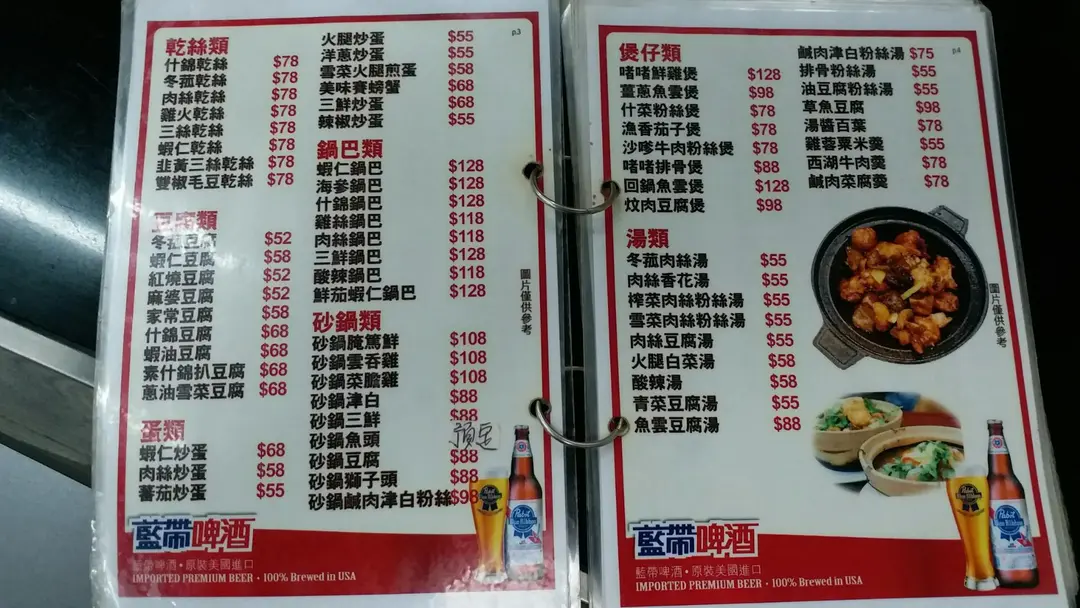 p3
乾絲類
什錦乾絲 $78
冬菰乾絲 $78
肉絲乾絲 $78
雞火乾絲 $78
三絲乾絲 $78
蝦仁乾絲 $78
韭黃三絲乾絲 $78
雙椒毛豆乾絲 $78
豆腐類
冬菰豆腐 $52
蝦仁豆腐 $58
紅燒豆腐 $52
麻婆豆腐 $52
家常豆腐 $58
什錦豆腐 $68
蝦油豆腐 $68
素什錦扒豆腐 $68
蔥油雪菜豆腐 $68
蛋類
蝦仁炒蛋 $68
肉絲炒蛋 $58
蕃茄炒蛋 $55
火腿炒蛋 $55
洋蔥炒蛋 $55
雪菜火腿煎蛋 $58
美味賽螃蟹 $68
三鮮炒蛋 $68
辣椒炒蛋 $55
鍋巴類
蝦仁鍋巴 $128
海參鍋巴 $128
什錦鍋巴 $128
雞絲鍋巴 $118
肉絲鍋巴 $118
三鮮鍋巴 $128
酸辣鍋巴 $118
鮮茄蝦仁鍋巴 $128
砂鍋類
砂鍋腌篤鮮 $108
砂鍋雲吞雞 $108
砂鍋菜膽雞 $108
砂鍋津白 $88
砂鍋三鮮 $88
砂鍋魚頭
砂鍋豆腐 $88
砂鍋獅子頭 $88
砂鍋鹹肉津白粉絲 $98
圖片僅供參考
藍帶啤酒
藍帶啤酒・原裝美國進口
IMPORTED PREMIUM BEER・100% Brewed in USA
p4
煲仔類
啫啫鮮雞煲 $128
薑蔥魚雲煲 $98
什菜粉絲煲 $78
漁香茄子煲 $78
沙嗲牛肉粉絲煲 $78
啫啫排骨煲 $88
回鍋魚雲煲 $128
炆肉豆腐煲 $98
湯類
冬菰肉絲湯 $55
肉絲香花湯 $55
榨菜肉絲粉絲湯 $55
雪菜肉絲粉絲湯 $55
肉絲豆腐湯 $55
火腿白菜湯 $58
酸辣湯 $58
青菜豆腐湯 $55
魚雲豆腐湯 $88
鹹肉津白粉絲湯 $75
排骨粉絲湯 $55
油豆腐粉絲湯 $55
草魚豆腐 $98
湯醬百葉 $78
雞蓉粟米羹 $55
西湖牛肉羹 $78
鹹肉菜腐羹 $78
圖片僅供參考
藍帶啤酒
藍帶啤酒・原裝美國進口
IMPORTED PREMIUM BEER・100% Brewed in USA
Pabst
Blue Ribbon